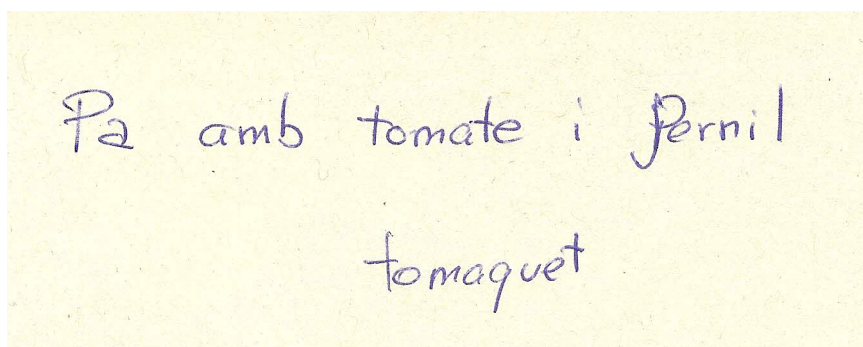 Pa amb tomate i Pernil
tomaquet